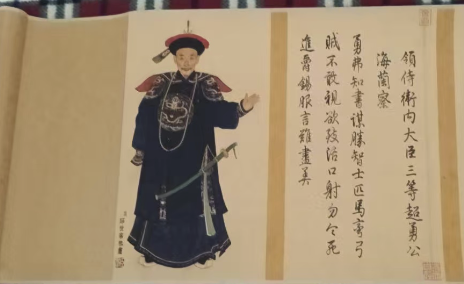 領侍衛內大臣三等超勇公
海蘭察
勇弗知書謀勝智士匹馬彎弓
賊不敢視欲致活口射勿令死
進爵錫服言難盡美